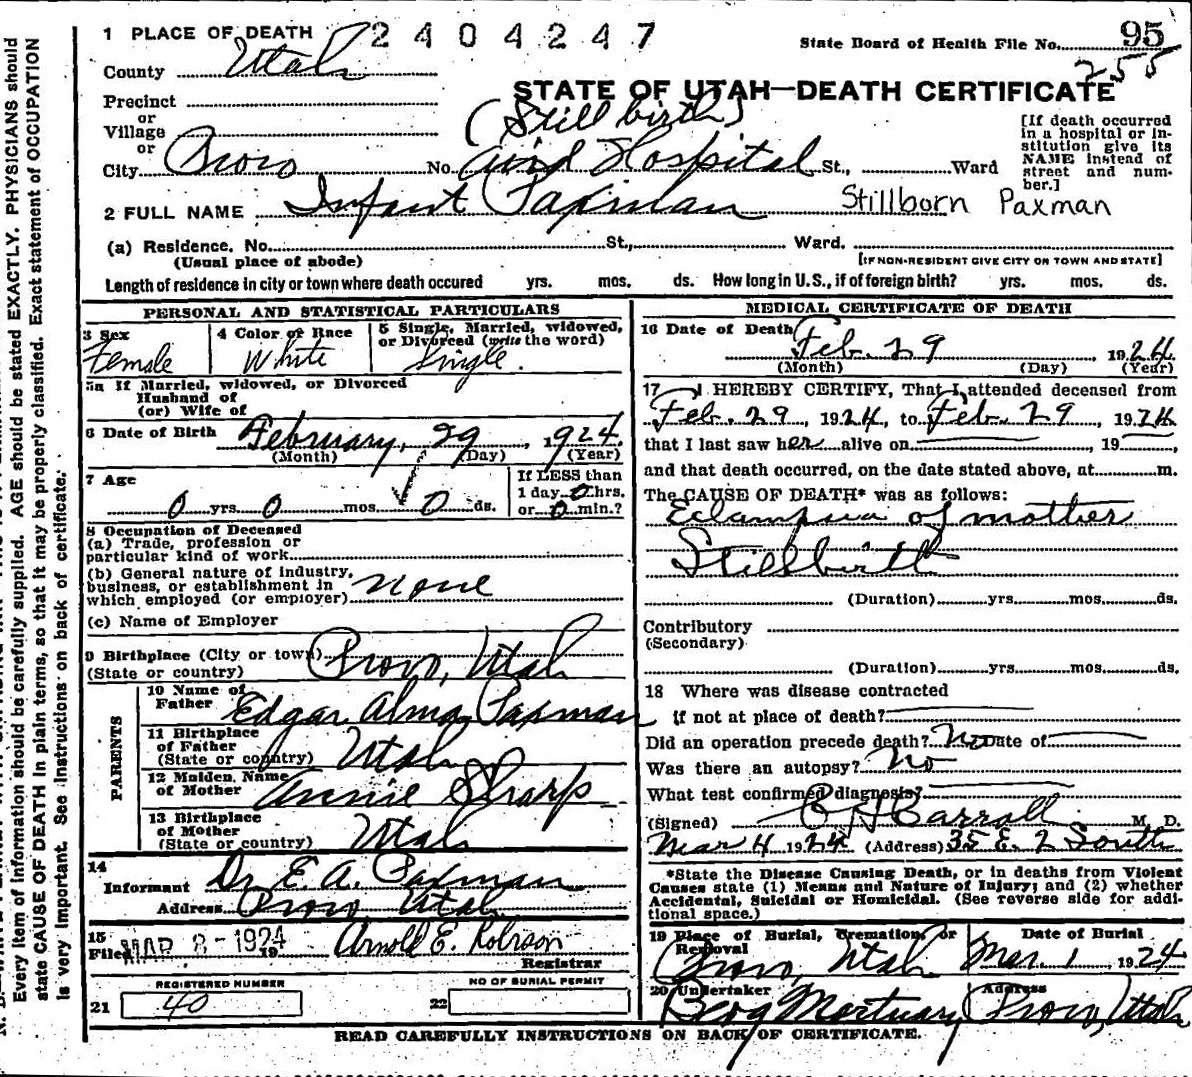 1 PLACE OF DEATH 2404247
State Board of Health File No. 95
255
County Utah
STATE OF UTAH—DEATH CERTIFICATE
Precinct
or
Village
or
(Still birth)
City Provo No. Aird Hospital St., Ward
[If death occurred
in a hospital or in-
stitution give its
NAME instead of
street and num-
ber.]
2 FULL NAME Infant Paxman Stillborn Paxman
(a) Residence. No. St., Ward.
(Usual place of abode) [IF NON-RESIDENT GIVE CITY OR TOWN AND STATE]
Length of residence in city or town where death occured yrs. mos. ds. How long in U.S., if of foreign birth? yrs. mos. ds.
PERSONAL AND STATISTICAL PARTICULARS
3 Sex Female
4 Color or Race White
5 Single, Married, widowed,
or Divorced (write the word)
Single.
5a If Married, widowed, or Divorced
Husband of
(or) Wife of
6 Date of Birth February, 29, 1924.
(Month) (Day) (Year)
7 Age
0 yrs. 0 mos. 0 ds.
If LESS than
1 day 0 hrs.
or 0 min.?
8 Occupation of Deceased
(a) Trade, profession or
particular kind of work
(b) General nature of industry,
business, or establishment in
which employed (or employer) none
(c) Name of Employer
9 Birthplace (City or town) Provo, Utah
(State or country)
PARENTS
10 Name of
Father Edgar Alma Paxman
11 Birthplace
of Father
(State or country) Utah
12 Maiden Name
of Mother Annie Sharp
13 Birthplace
of Mother
(State or country) Utah
14
Informant Dr. E. A. Paxman
Address Provo Utah
15
Filed MAR 8-1924 19 Arnold E. Robison
Registrar
REGISTERED NUMBER
21 40
NO OF BURIAL PERMIT
22
MEDICAL CERTIFICATE OF DEATH
16 Date of Death Feb. 29 1924
(Month) (Day) (Year)
17 I HEREBY CERTIFY, That I attended deceased from
Feb. 29, 1924, to Feb. 29, 1924
that I last saw her alive on , 19 ,
and that death occurred, on the date stated above, at m.
The CAUSE OF DEATH* was as follows:
Eclampsia of mother
Stillbirth
(Duration) yrs. mos. ds.
Contributory
(Secondary)
(Duration) yrs. mos. ds.
18 Where was disease contracted
if not at place of death?
Did an operation precede death? No Date of
Was there an autopsy? No
What test confirmed diagnosis?
(Signed) Carroll M. D.
Mar 4 1924 (Address) 35 E. 2 South
*State the Disease Causing Death, or in deaths from Violent
Causes state (1) Means and Nature of Injury; and (2) whether
Accidental, Suicidal or Homicidal. (See reverse side for addi-
tional space.)
19 Place of Burial, Cremation, or
Removal
Provo, Utah
Date of Burial
Mar. 1 1924
20 Undertaker
Berg Mortuary
Address
Provo, Utah
READ CAREFULLY INSTRUCTIONS ON BACK OF CERTIFICATE.
Every item of information should be carefully supplied. AGE should be stated EXACTLY. PHYSICIANS should
state CAUSE OF DEATH in plain terms, so that it may be properly classified. Exact statement of OCCUPATION
is very important. See instructions on back of certificate.